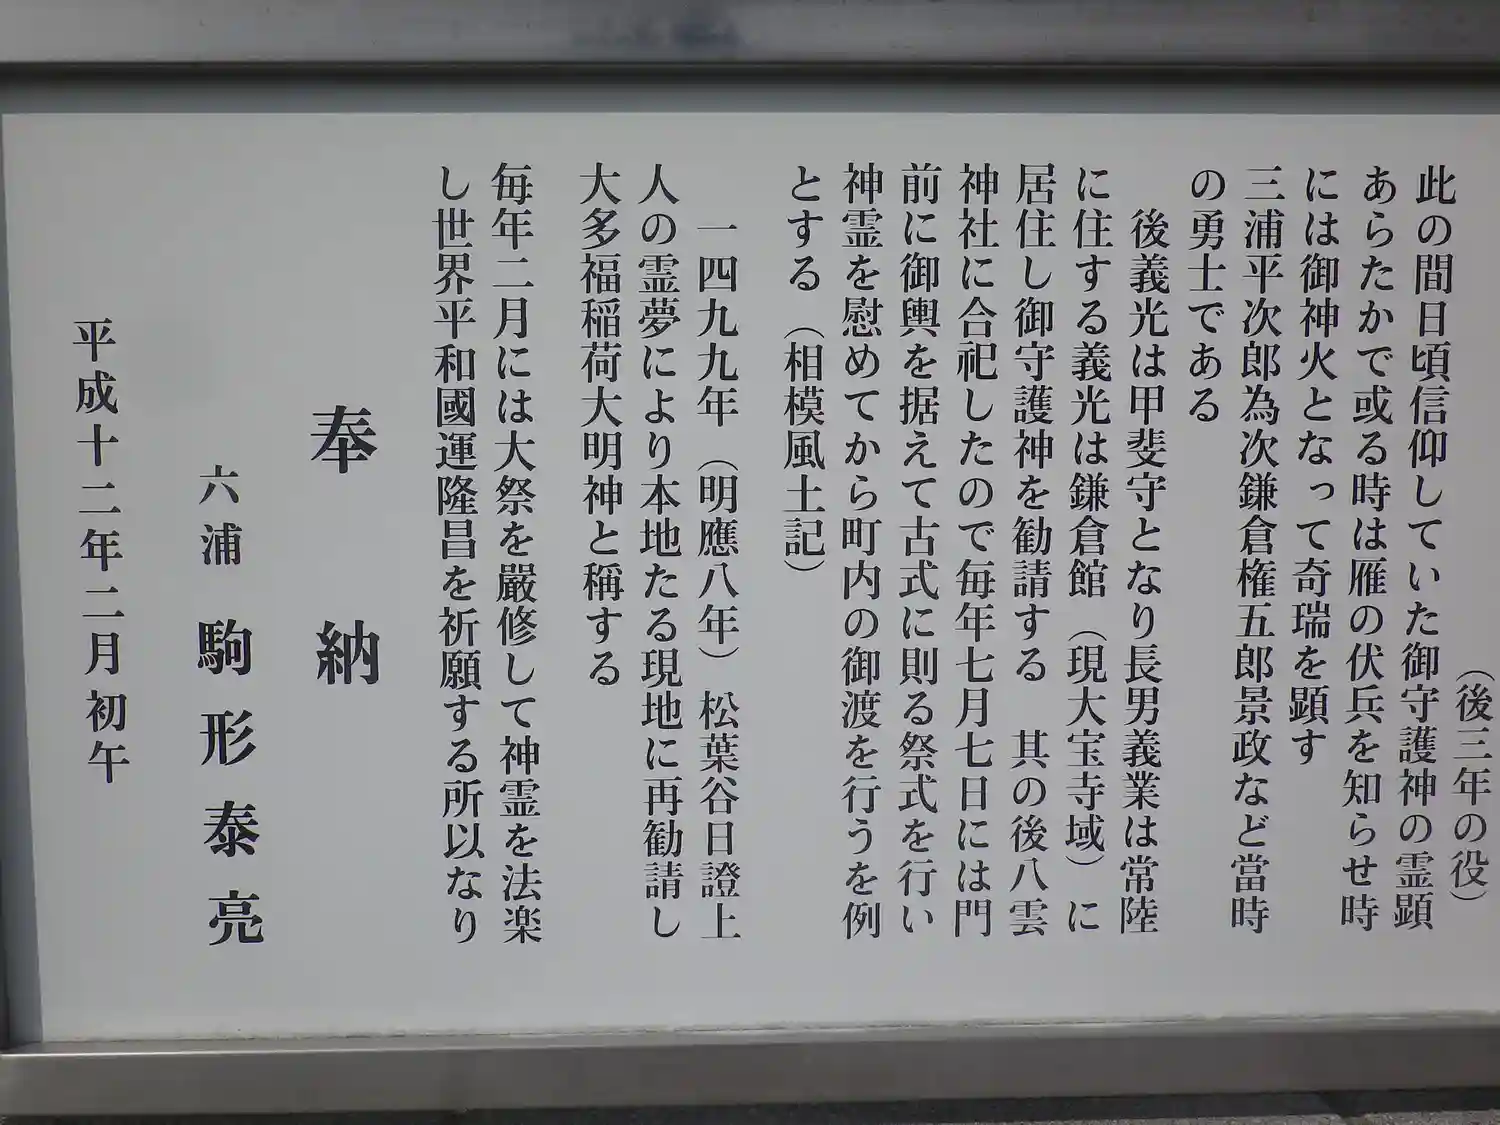 （後三年の役）
此の間日頃信仰していた御守護神の霊顕
あらたかで或る時は雁の伏兵を知らせ時
には御神火となって奇瑞を顕す
三浦平次郎為次鎌倉権五郎景政など當時
の勇士である
後義光は甲斐守となり長男義業は常陸
に住する義光は鎌倉館（現大宝寺域）に
居住し御守護神を勧請する　其の後八雲
神社に合祀したので毎年七月七日には門
前に御輿を据えて古式に則る祭式を行い
神霊を慰めてから町内の御渡を行うを例
とする（相模風土記）
一四九九年（明應八年）松葉谷日證上
人の霊夢により本地たる現地に再勧請し
大多福稲荷大明神と稱する
毎年二月には大祭を嚴修して神霊を法楽
し世界平和國運隆昌を祈願する所以なり
奉納
六浦　駒形泰亮
平成十二年二月初午